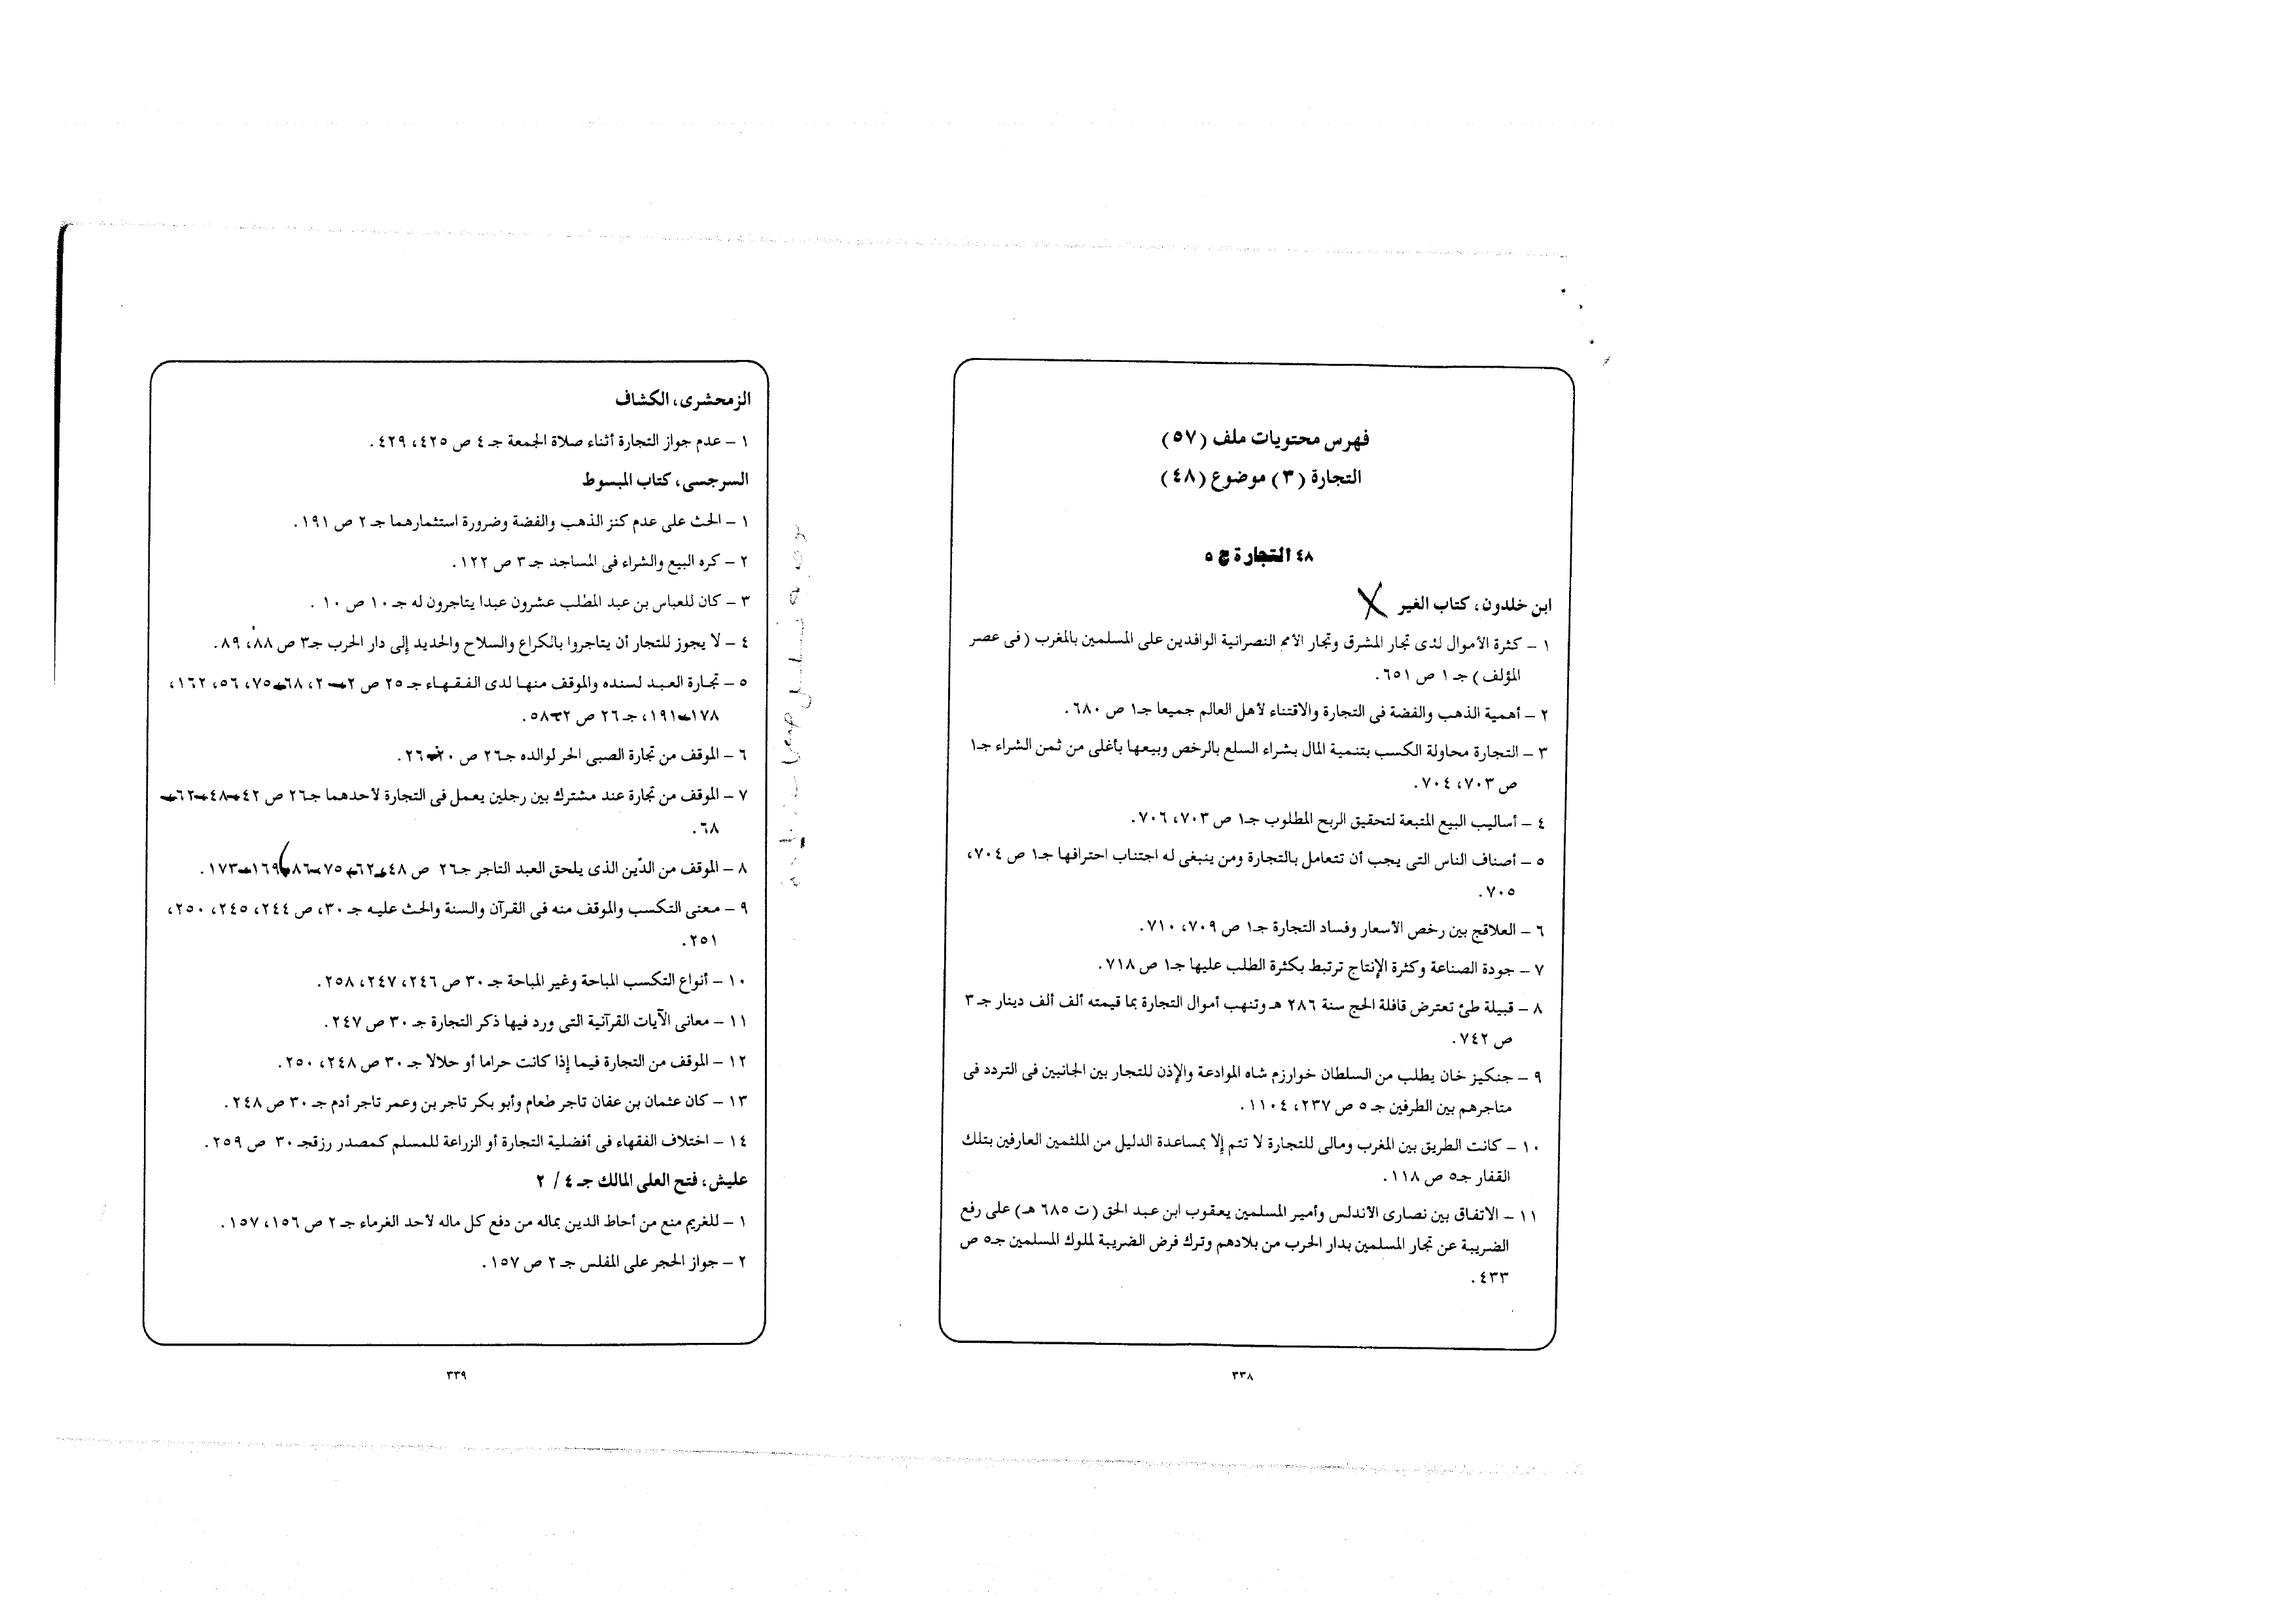 فهرس محتويات ملف (٥٧)
التجارة (٣) موضوع (٤٨)
٤٨ التجارة ج ٥
ابن خلدون، كتاب الغير
١ – كثرة الأموال لدى تجار المشرق وتجار الأمم النصرانية الوافدين على المسلمين بالمغرب (فى عصر
المؤلف) جـ ١ ص ٦٥١.
٢ – أهمية الذهب والفضة فى التجارة والاقتناء لأهل العالم جميعا جـ١ ص ٦٨٠.
٣ – التجارة محاولة الكسب بتنمية المال بشراء السلع بالرخص وبيعها بأغلى من ثمن الشراء جـ١
ص ٧٠٣، ٧٠٤.
٤ – أساليب البيع المتبعة لتحقيق الربح المطلوب جـ١ ص ٧٠٣، ٧٠٦.
٥ – أصناف الناس التى يجب أن تتعامل بالتجارة ومن ينبغى له اجتناب احترافها جـ١ ص ٧٠٤،
٧٠٥.
٦ – العلاقج بين رخص الأسعار وفساد التجارة جـ١ ص ٧٠٩، ٧١٠.
٧ – جودة الصناعة وكثرة الإنتاج ترتبط بكثرة الطلب عليها جـ١ ص ٧١٨.
٨ – قبيلة طئ تعترض قافلة الحج سنة ٢٨٦ هـ وتنهب أموال التجارة بما قيمته ألف ألف دينار جـ ٣
ص ٧٤٢.
٩ – جنكيز خان يطلب من السلطان خوارزم شاه الموادعة والإذن للتجار بين الجانبين فى التردد فى
متاجرهم بين الطرفين جـ ٥ ص ٢٣٧، ١١٠٤.
١٠ – كانت الطريق بين المغرب ومالى للتجارة لا تتم إلا بمساعدة الدليل من الملثمين العارفين بتلك
القفار جـ٥ ص ١١٨.
١١ – الاتفاق بين نصارى الأندلس وأمير المسلمين يعقوب ابن عبد الحق (ت ٦٨٥ هـ) على رفع
الضريبة عن تجار المسلمين بدار الحرب من بلادهم وترك فرض الضريبة لملوك المسلمين جـ٥ ص
٤٣٣.
٣٣٨
الزمحشرى، الكشاف
١ – عدم جواز التجارة أثناء صلاة الجمعة جـ ٤ ص ٤٢٥، ٤٢٩.
السرجسى، كتاب المبسوط
١ – الحث على عدم كنز الذهب والفضة وضرورة استثمارهما جـ ٢ ص ١٩١.
٢ – كره البيع والشراء فى المساجد جـ ٣ ص ١٢٢.
٣ – كان للعباس بن عبد المطلب عشرون عبدا يتاجرون له جـ ١٠ ص ١٠.
٤ – لا يجوز للتجار أن يتاجروا بالكراع والسلاح والحديد إلى دار الحرب جـ٣ ص ٨٨، ٨٩.
٥ – تجارة العبد لسنده والموقف منها لدى الفقهاء جـ ٢٥ ص ٢–٢، ٦٨–٧٥، ٥٦، ١٦٢،
١٧٨–١٩١، جـ ٢٦ ص ٢–٥٨.
٦ – الموقف من تجارة الصبى الحر لوالده جـ٢٦ ص ٢٠–٢٦.
٧ – الموقف من تجارة عند مشترك بين رجلين يعمل فى التجارة لأحدهما جـ٢٦ ص ٤٢–٤٨–٦٢–
٦٨.
٨ – الموقف من الدّين الذى يلحق العبد التاجر جـ٢٦ ص ٤٨–٦٢–٧٥–٨٦–١٦٩–١٧٣.
٩ – معنى التكسب والموقف منه فى القرآن والسنة والحث عليه جـ ٣٠، ص ٢٤٤، ٢٤٥، ٢٥٠،
٢٥١.
١٠ – أنواع التكسب المباحة وغير المباحة جـ ٣٠ ص ٢٤٦، ٢٤٧، ٢٥٨.
١١ – معانى الآيات القرآنية التى ورد فيها ذكر التجارة جـ ٣٠ ص ٢٤٧.
١٢ – الموقف من التجارة فيما إذا كانت حراما أو حلالا جـ ٣٠ ص ٢٤٨، ٢٥٠.
١٣ – كان عثمان بن عفان تاجر طعام وأبو بكر تاجر بن وعمر تاجر أدم جـ ٣٠ ص ٢٤٨.
١٤ – اختلاف الفقهاء فى أفضلية التجارة أو الزراعة للمسلم كمصدر رزقجـ ٣٠ ص ٢٥٩.
عليش، فتح العلى المالك جـ ٤ / ٢
١ – للغريم منع من أحاط الدين بماله من دفع كل ماله لأحد الغرماء جـ ٢ ص ١٥٦، ١٥٧.
٢ – جواز الحجر على المفلس جـ ٢ ص ١٥٧.
٣٣٩